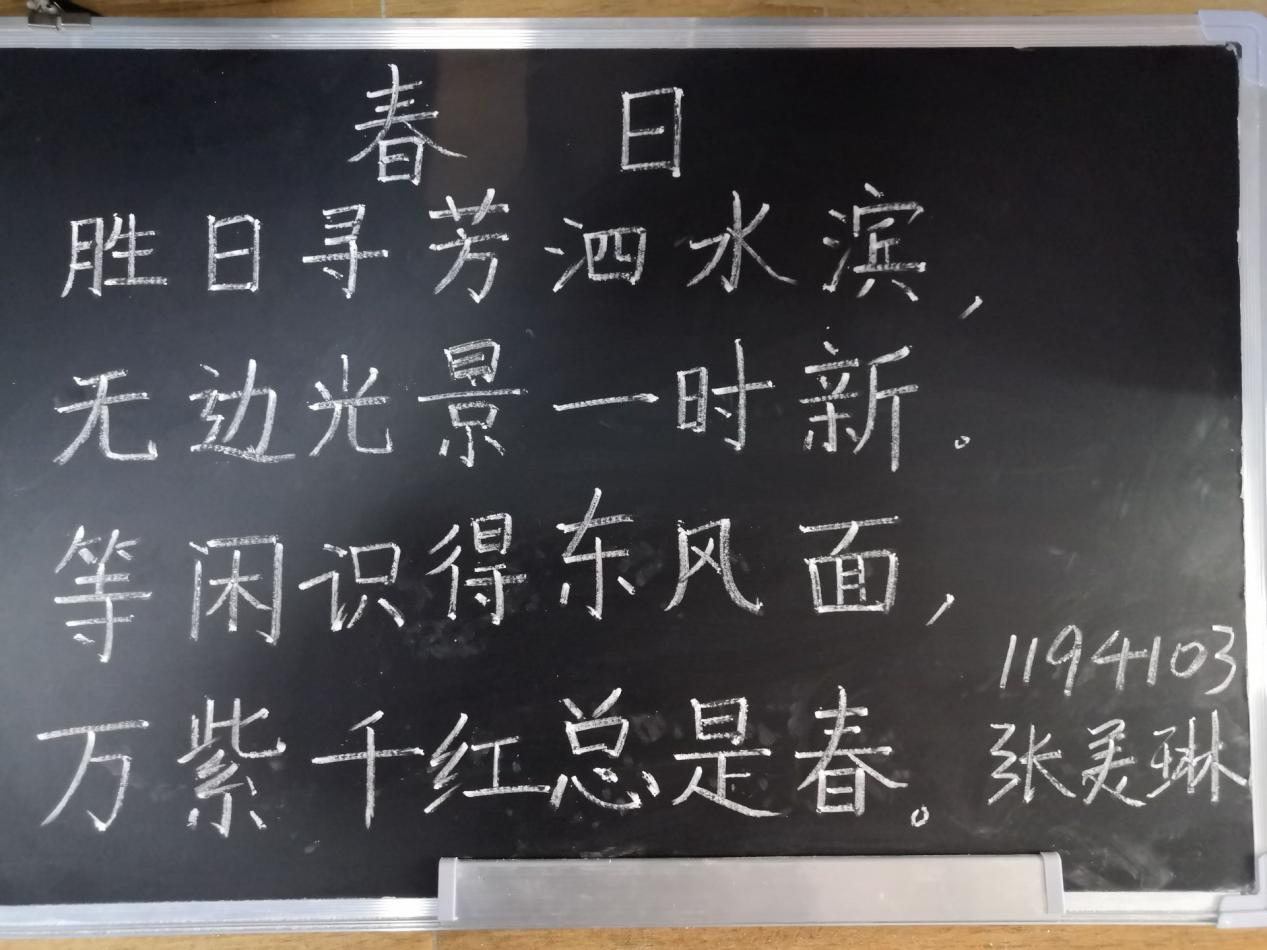 春日
胜日寻芳泗水滨，
无边光景一时新。
等闲识得东风面，
万紫千红总是春。
11194103
张美琳